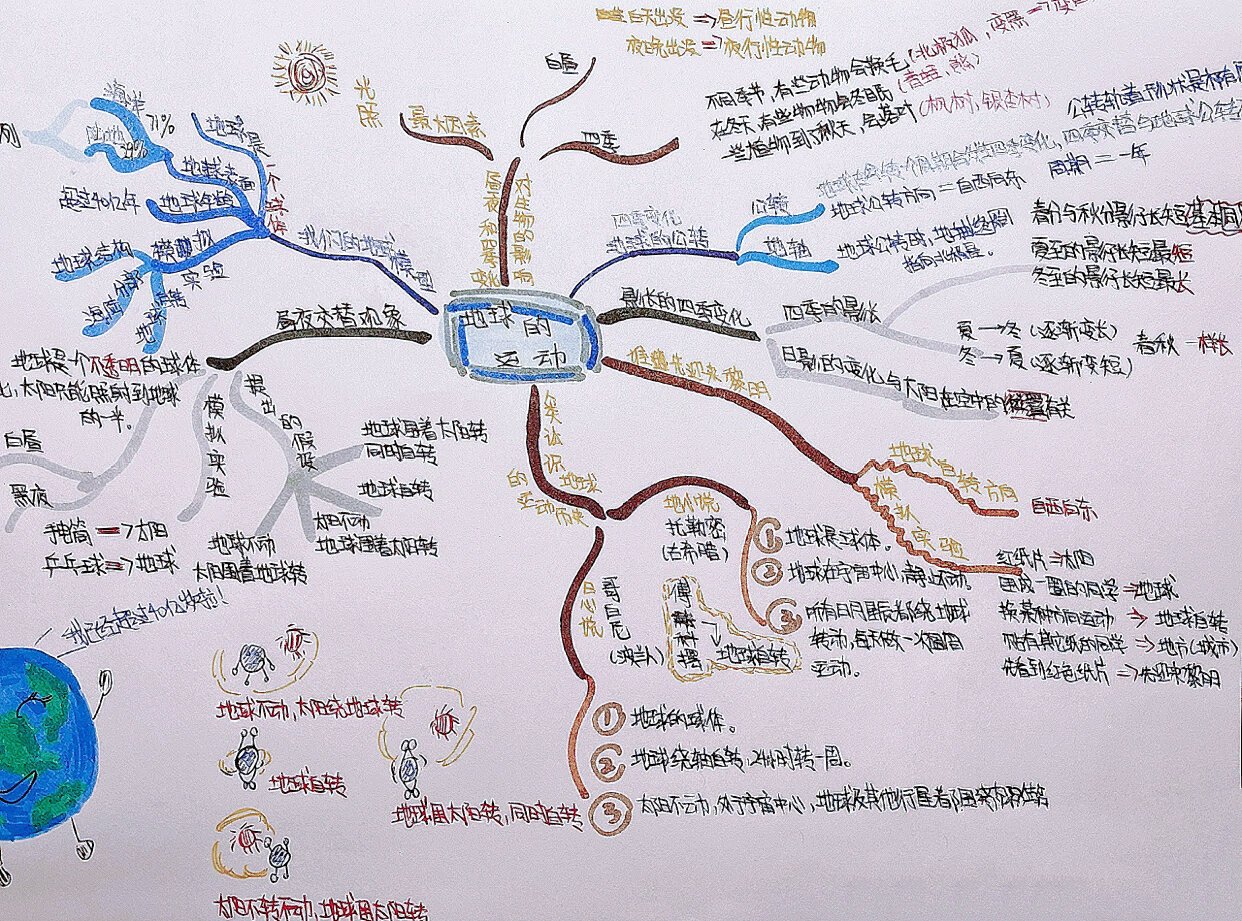 地球的
运动
我们的地球模型
地球是一个球体
地球表面
海洋
71%
陆地
29%
地球年龄
超过40亿年
模拟实验
地球结构
昼夜和四季变化
对生物的影响
最大因素
光照
白昼
四季
白天出没 => 昼行性动物
夜晚出没 => 夜行性动物
不同季节,有些动物会换毛(北极狐
在冬天,有些动物会冬眠(青蛙、熊)
一些植物到了秋天,会落叶(枫树,银杏树)
四季变化
地球的公转
公转
地球公转方向=自西向东
周期=一年
地轴
地球公转时,地轴始终
指向北极星。
影长的四季变化
四季的影长
春分与秋分影长长短基本
夏至的影长长短最短
冬至的影长长短最长
夏→冬(逐渐变长)
冬→夏(逐渐变短)
春秋一样长
日影的变化与太阳在空中的位置有关
谁先迎来黎明
地球自转方向
自西向东
模拟实验
红纸片=>太阳
围成一圈的同学=>地球
按某种方向运动→地球自转
先看到红色纸片=>先迎来黎明
昼夜交替现象
地球是一个不透明的球体
太阳只能照射到地球
的一半。
白昼
黑夜
模拟实验
手电筒=>太阳
乒乓球=>地球
提出的假设
地球围着太阳转
同时自转
地球自转
太阳不动
地球围着太阳转
地球不动
太阳围着地球转
人类认识地球
的运动历史
地心说
托勒密
(古希腊)
①地球是球体。
②地球在宇宙中心,静止不动。
③所有日月星辰都绕地球
转动,每天做一次圆周
运动。
日心说
哥白尼
(波兰人)
傅科摆
地球自转
①地球的球体。
②地球绕轴自转,24小时转一周。
③太阳不动,处于宇宙中心,地球及其他行星都围着太阳转
我已经超过40亿岁啦!
地球不动,太阳绕地球转
地球自转
地球围太阳转,同时自转
太阳不转不动,地球围太阳转